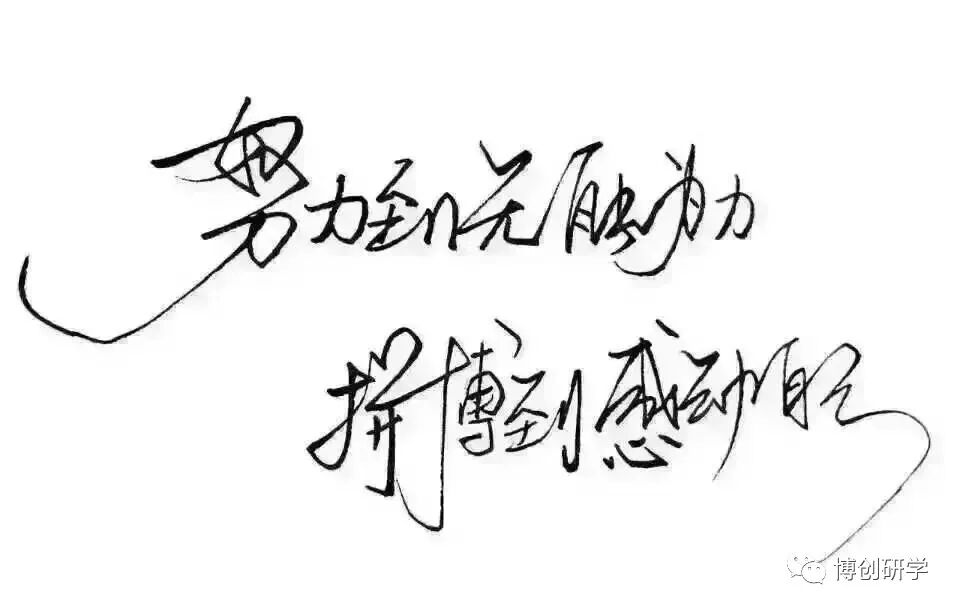 努力到无能为力
拼博到感动自己
博创研学